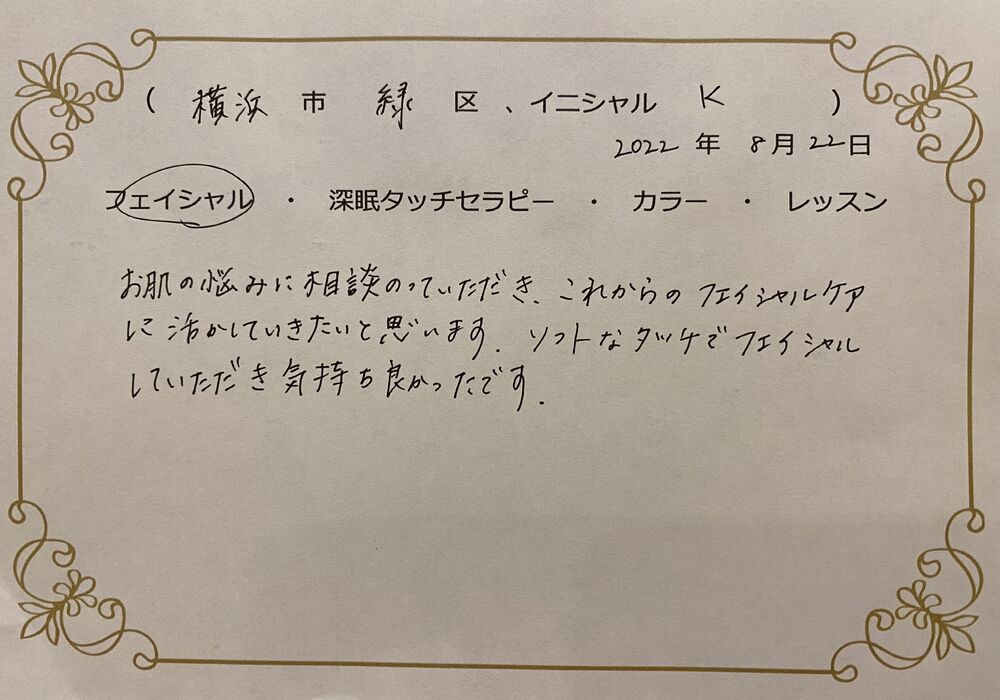 ( 横浜 市 緑 区 、イニシャル K )
2022 年 8月 22日
フェイシャル ・ 深眠タッチセラピー ・ カラー ・ レッスン
お肌の悩みに相談のっていただき、これからのフェイシャルケア
に活かしていきたいと思います。ソフトなタッチでフェイシャル
していただき気持ち良かったです。